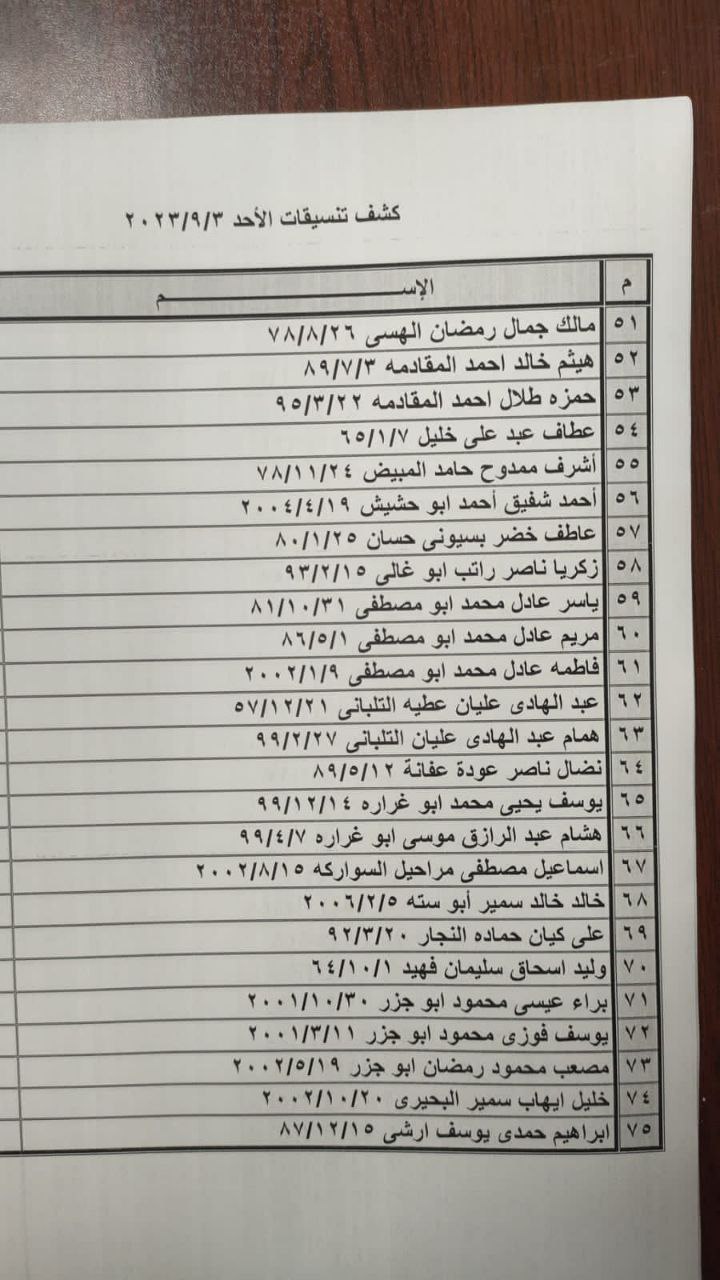 كشف تنسيقات الأحد ٢٠٢٣/٩/٣
م الإســـــــــــــــم
٥١ مالك جمال رمضان الهسى ٧٨/٨/٢٦
٥٢ هيثم خالد احمد المقادمه ٨٩/٧/٣
٥٣ حمزه طلال احمد المقادمه ٩٥/٣/٢٢
٥٤ عطاف عبد على خليل ٦٥/١/٧
٥٥ أشرف ممدوح حامد المبيض ٧٨/١١/٢٤
٥٦ أحمد شفيق أحمد ابو حشيش ٢٠٠٤/٤/١٩
٥٧ عاطف خضر بسيونى حسان ٨٠/١/٢٥
٥٨ زكريا ناصر راتب ابو غالى ٩٣/٢/١٥
٥٩ ياسر عادل محمد ابو مصطفى ٨١/١٠/٣١
٦٠ مريم عادل محمد ابو مصطفى ٨٦/٥/١
٦١ فاطمه عادل محمد ابو مصطفى ٢٠٠٢/١/٩
٦٢ عبد الهادى عليان عطيه التلبانى ٥٧/١٢/٢١
٦٣ همام عبد الهادى عليان التلبانى ٩٩/٢/٢٧
٦٤ نضال ناصر عودة عفانة ٨٩/٥/١٢
٦٥ يوسف يحيى محمد ابو غراره ٩٩/١٢/١٤
٦٦ هشام عبد الرازق موسى ابو غراره ٩٩/٤/٧
٦٧ اسماعيل مصطفى مراحيل السواركه ٢٠٠٢/٨/١٥
٦٨ خالد خالد سمير أبو سته ٢٠٠٦/٢/٥
٦٩ على كيان حماده النجار ٩٢/٣/٢٠
٧٠ وليد اسحاق سليمان فهيد ٦٤/١٠/١
٧١ براء عيسى محمود ابو جزر ٢٠٠١/١٠/٣٠
٧٢ يوسف فوزى محمود ابو جزر ٢٠٠١/٣/١١
٧٣ مصعب محمود رمضان ابو جزر ٢٠٠٢/٥/١٩
٧٤ خليل ايهاب سمير البحيرى ٢٠٠٢/١٠/٢٠
٧٥ ابراهيم حمدى يوسف ارشى ٨٧/١٢/١٥